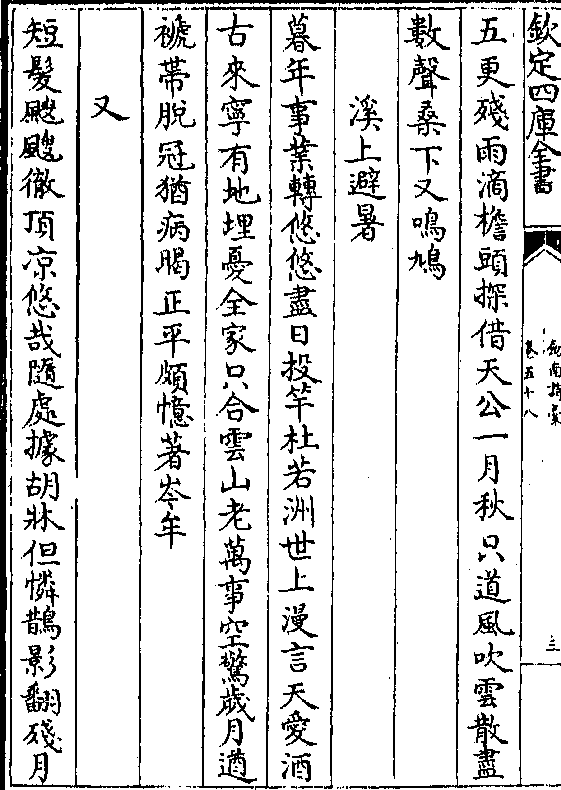 欽定四庫全書
劍南詩稾
卷五十八
三
五更殘雨滴檐頭探借天公一月秋只道風吹雲散盡
數聲桑下又鳴鳩
溪上避暑
暮年事業轉悠悠盡日投竿杜若洲世上漫言天愛酒
古來寧有地埋憂全家只合雲山老萬事空驚歲月遒
褫帶脫冠猶病暍正平頗憶著岑牟
又
短髮颼颼徹頂凉悠哉隨處據胡牀但憐鵲影翻殘月